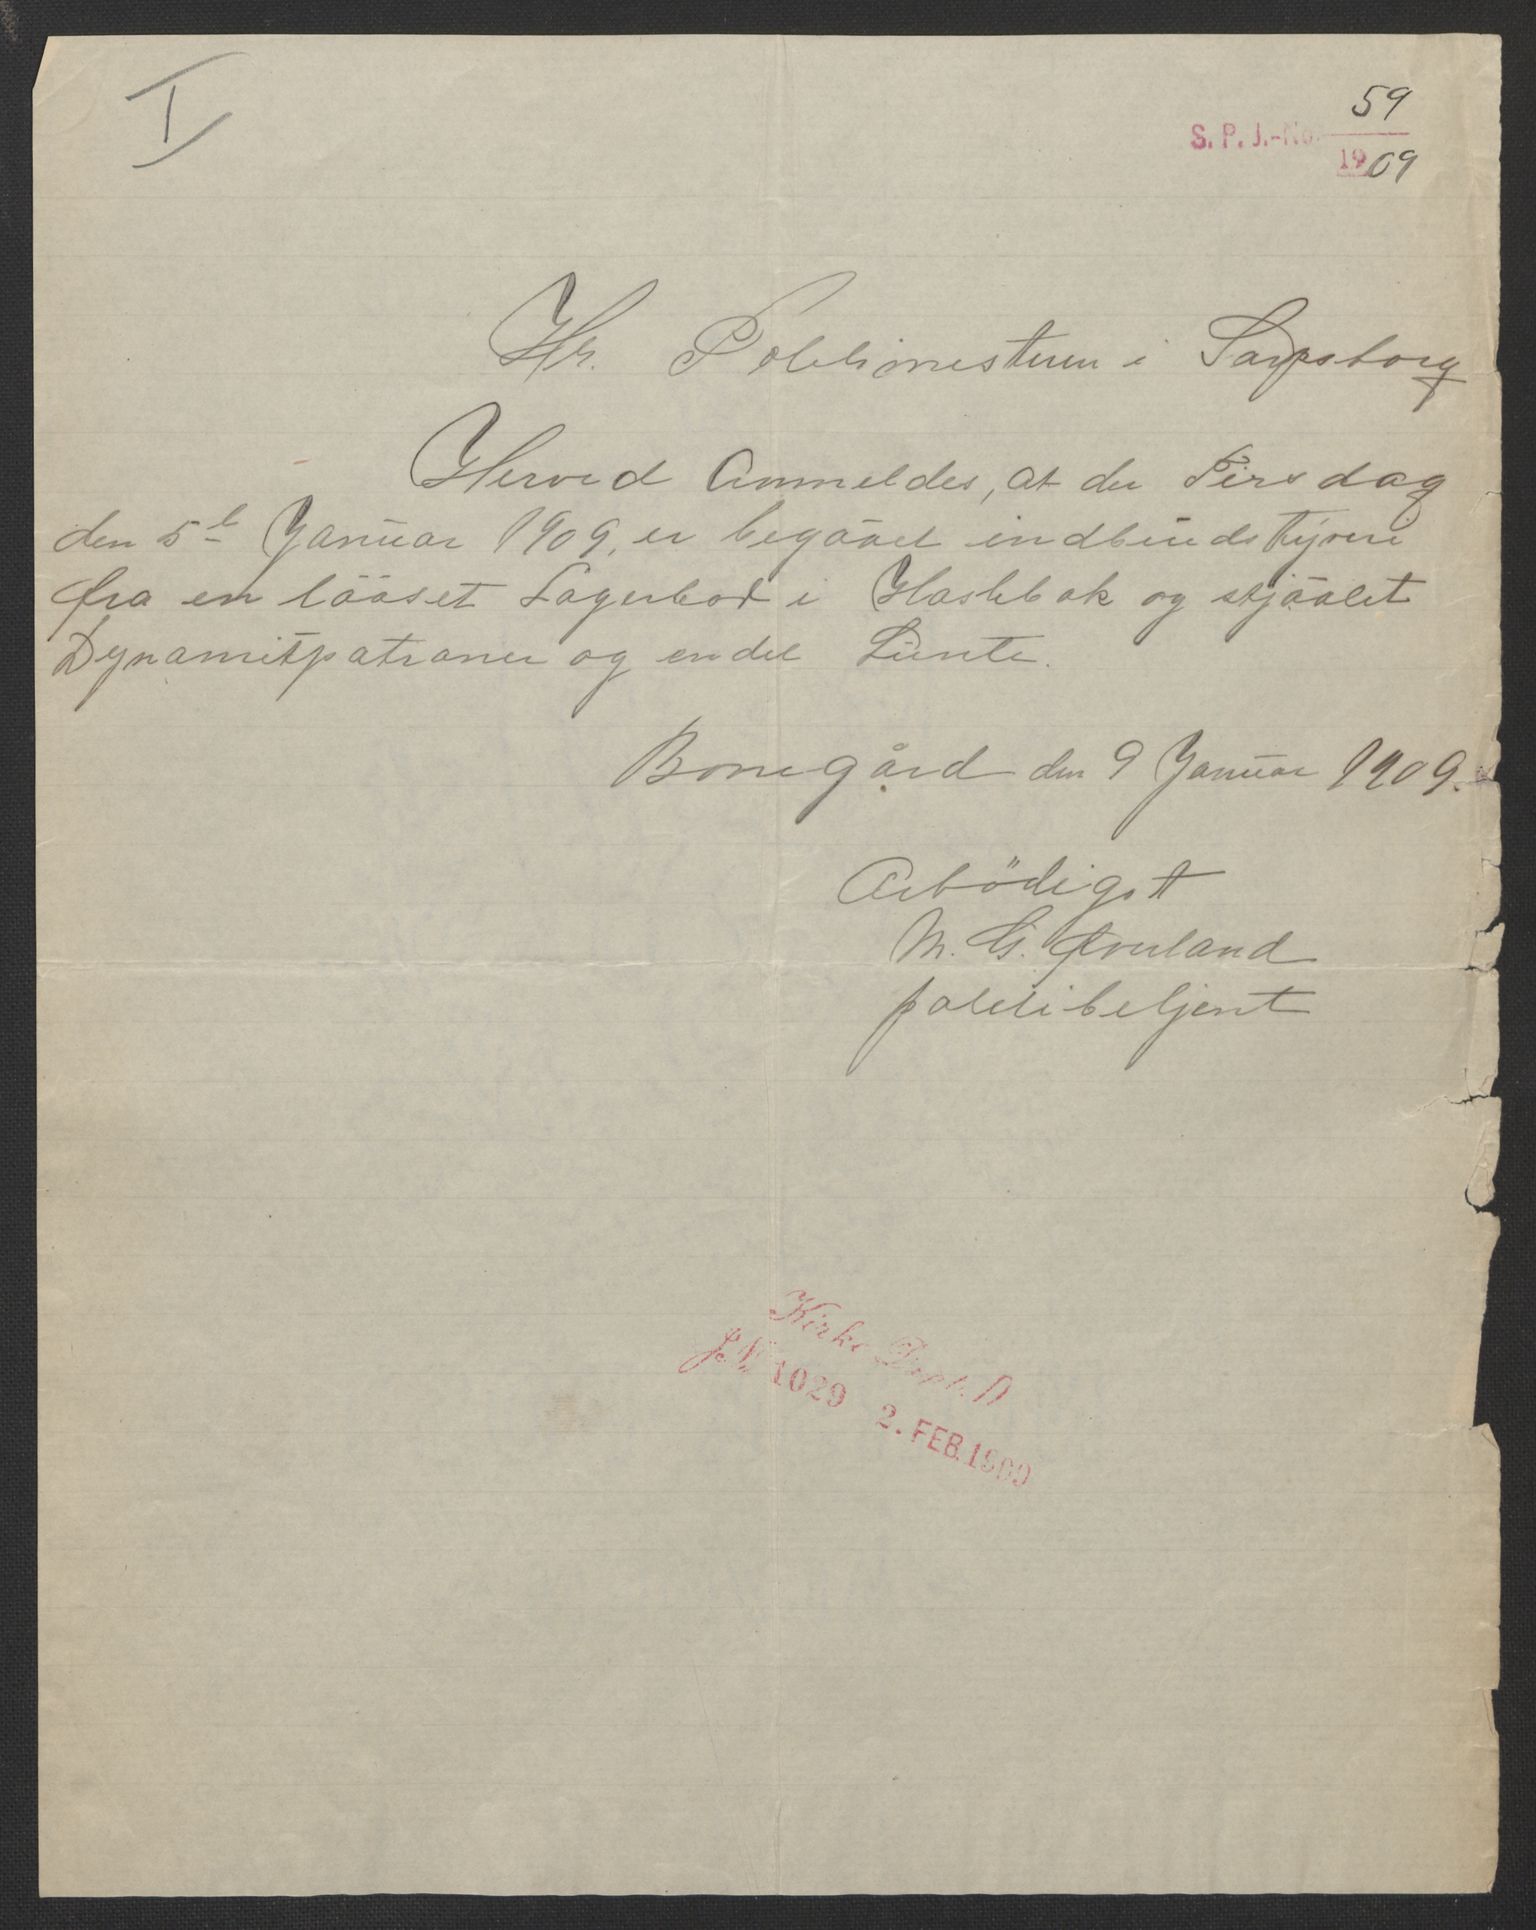 I
59
S. P. J.-No.
1909
Hr. Politimesteren i Sarpsborg
Herved Anmeldes, at der Tirsdag
den 5te Januar 1909, er begåået indbrudstyveri
fra en lååset Lagerbod i Hasle­bak og stjåålet
Dynamitpatroner og endel Lunte.
Borregård den 9 Januar 1909.
Ærbödigst
N. G. Øverland
politibetjent
Kirke Dept. D
J. N. 1029 2. FEB. 1909